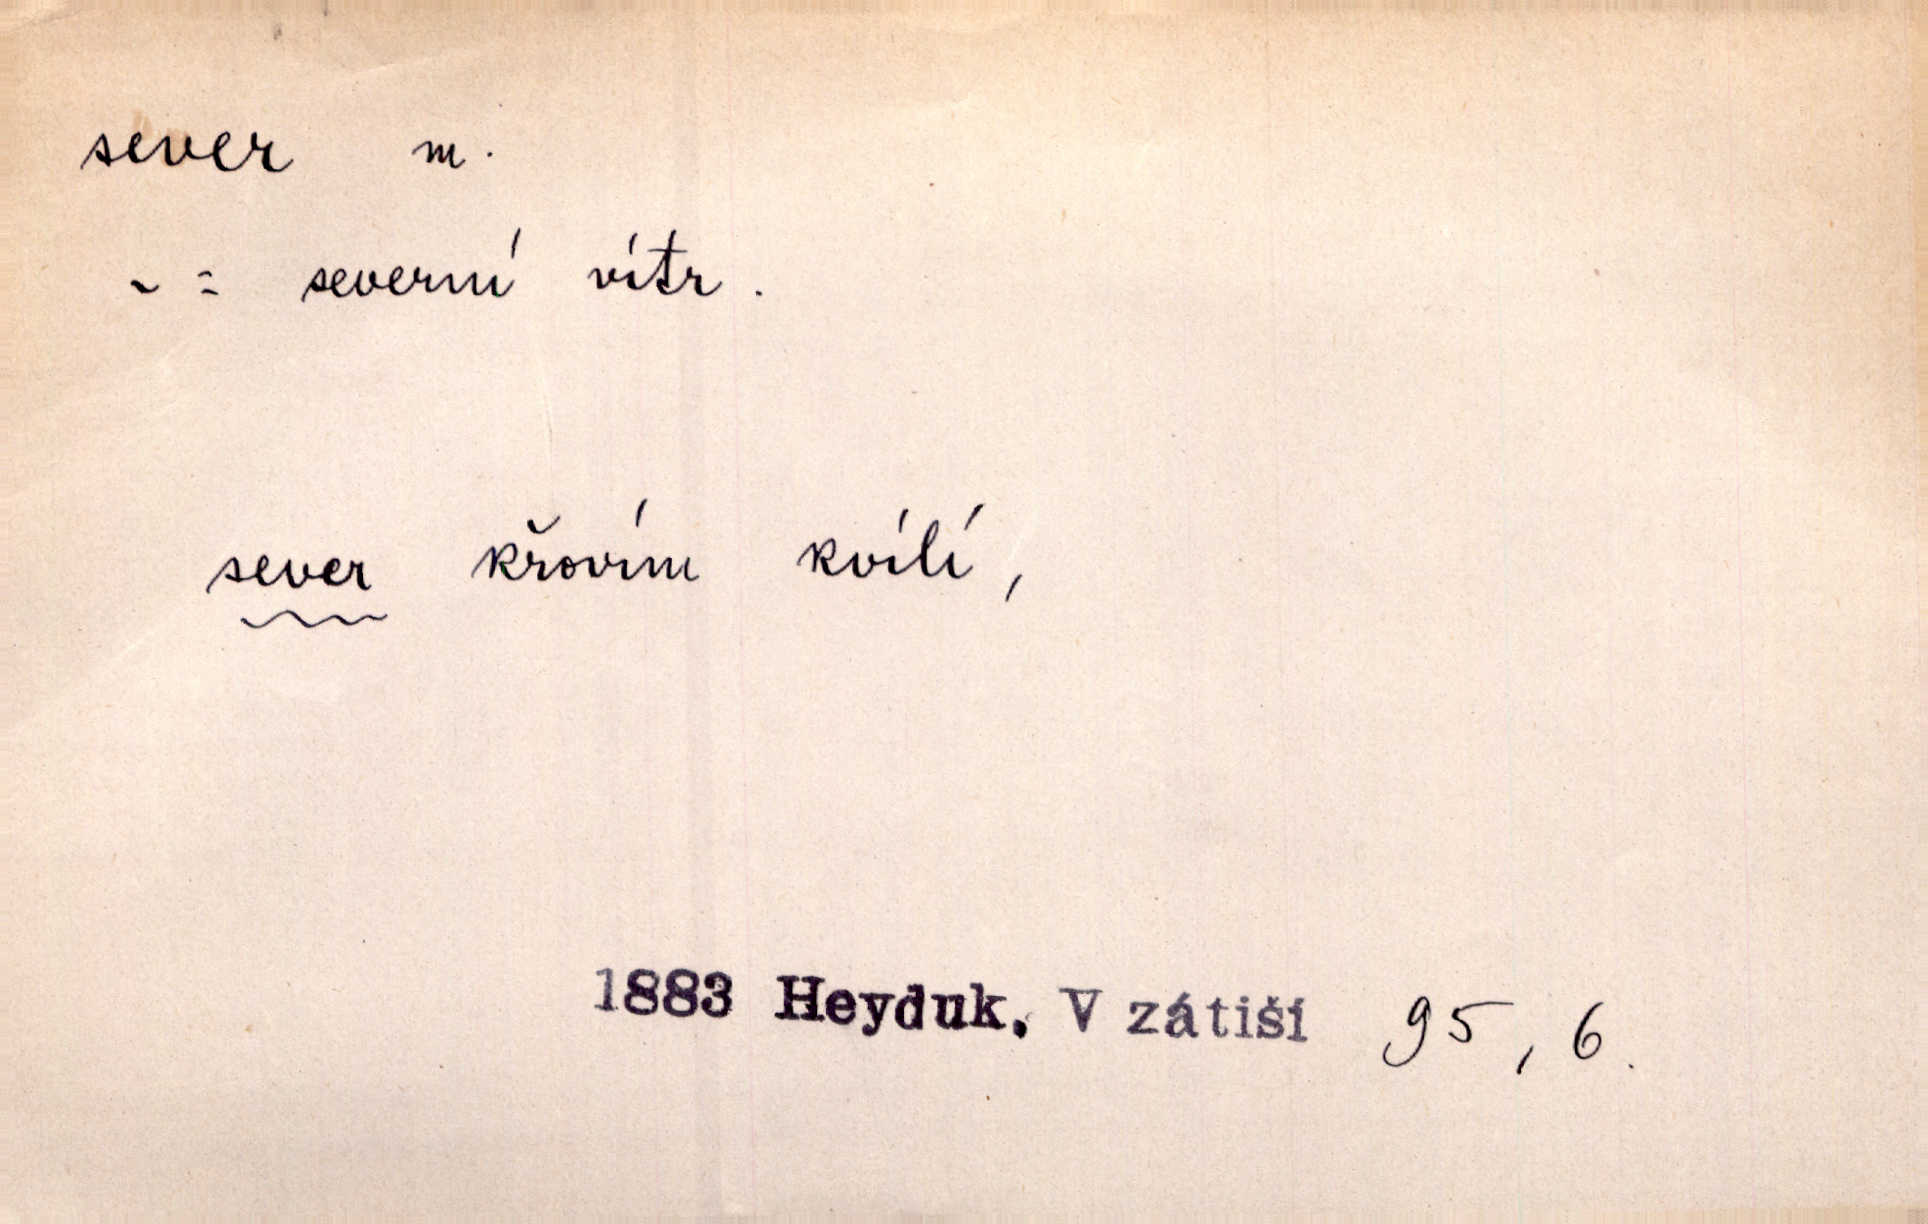 sever m.
~ = severní vítr.
sever křovím kvílí,
1883 Heyduk. V zátiší 95, 6.